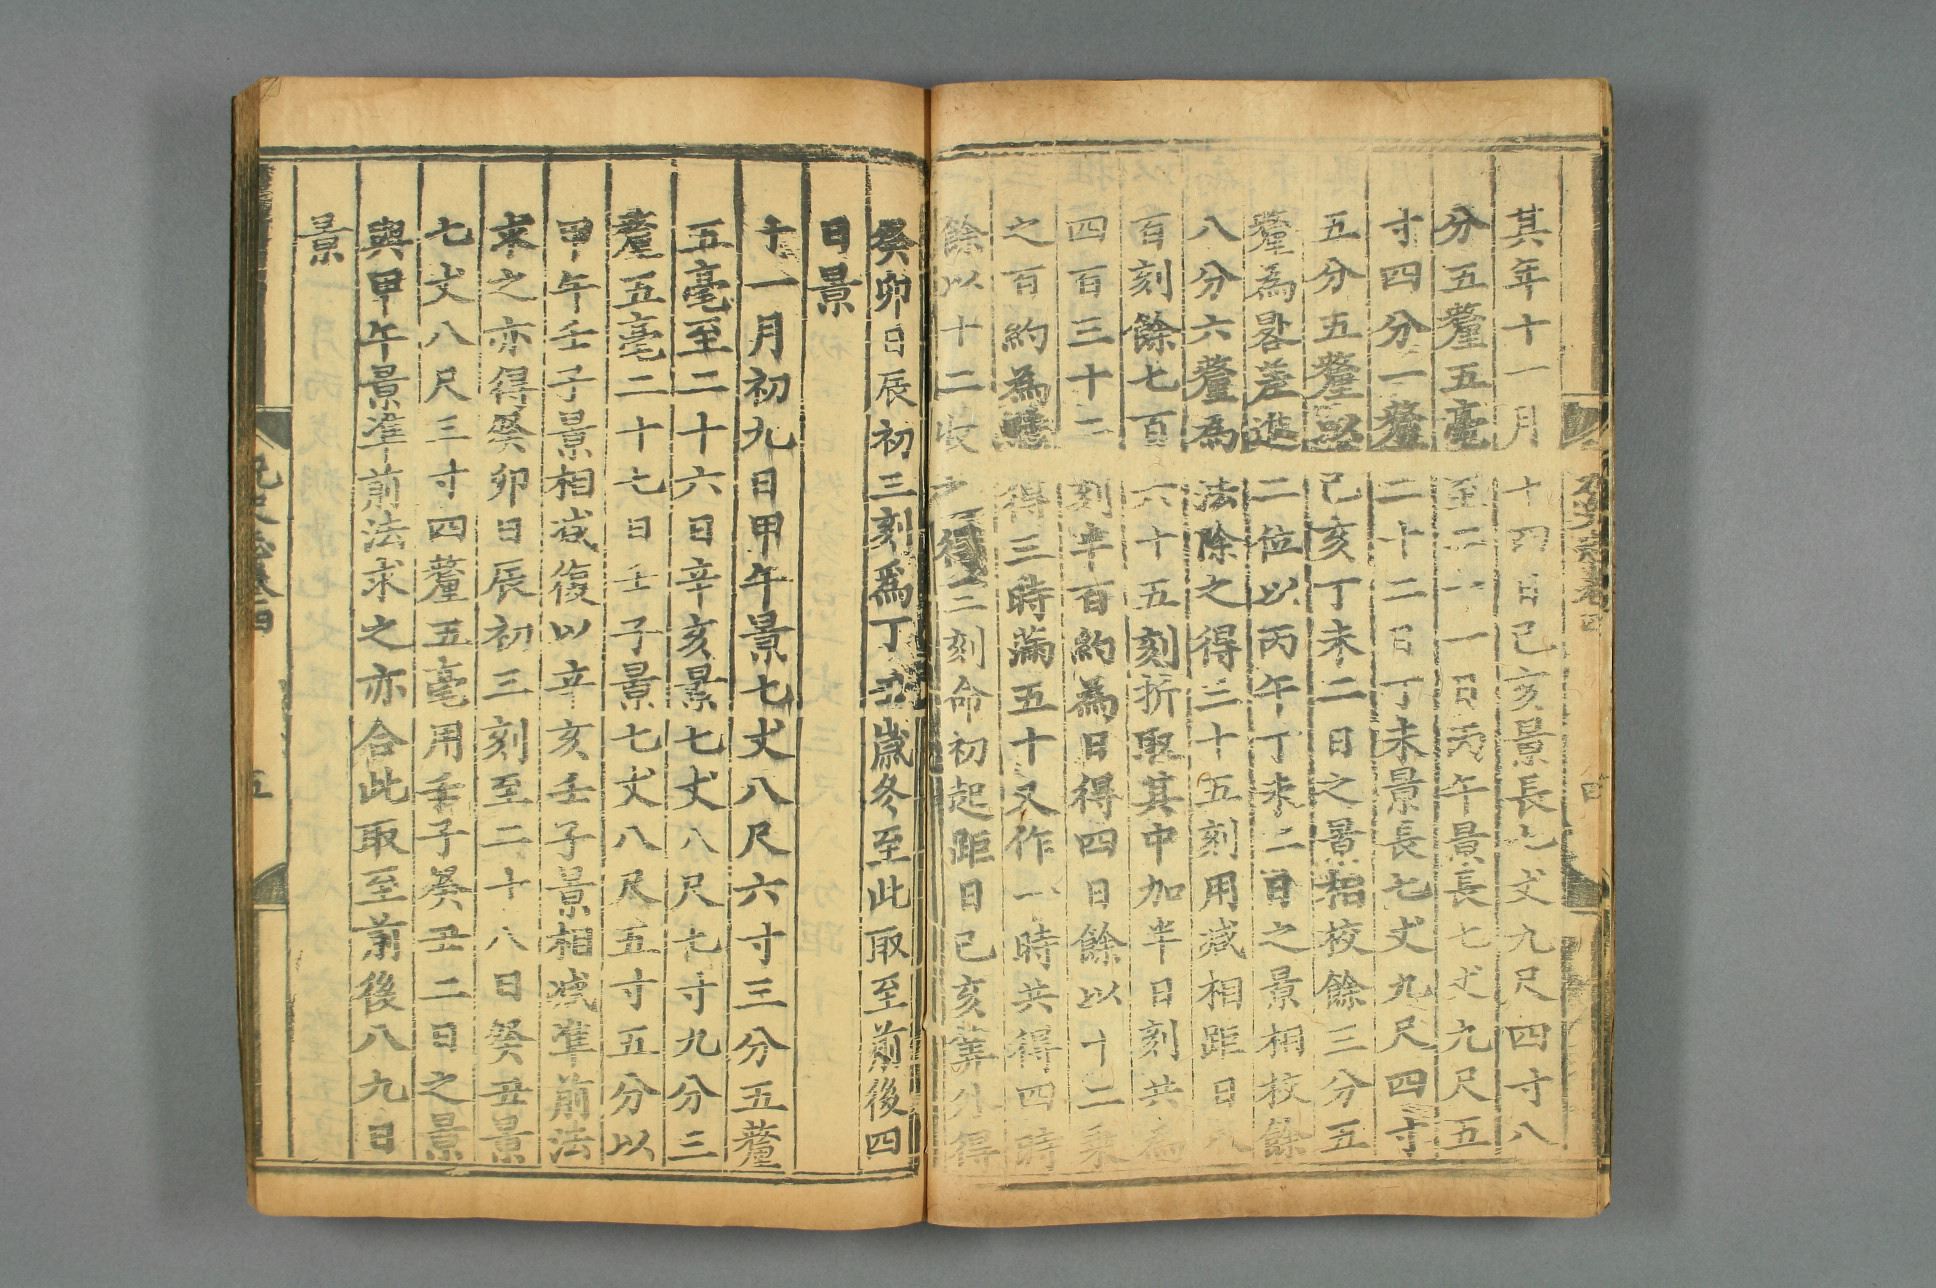 其年十一月十四日己亥景長七丈九尺四寸八
分五釐五毫至二十一日丙午景長七丈九尺五
寸四分一釐二十二日丁未景長七丈九尺四寸
五分五釐以己亥丁未二日之景相校餘三分五
釐為晷差進二位以丙午丁未二日之景相校餘
八分六釐為法除之得三十五刻用減相距日八
百刻餘七百六十五刻折取其中加半日刻共為
四百三十二刻半百約為日得四日餘以十二乘
之百約為時得三時滿五十又作一時共得四時
餘以十二收之得三刻命初起距日己亥筭外得
癸卯日辰初三刻爲丁丑歲冬至此取至前後四
日景
十一月初九日甲午景七丈八尺六寸三分五釐
五毫至二十六日辛亥景七丈八尺七寸九分三
釐五毫二十七日壬子景七丈八尺五寸五分以
甲午壬子景相減復以辛亥壬子景相減準前法
求之亦得癸卯日辰初三刻至二十八日癸丑景
七丈八尺三寸四釐五毫用壬子癸丑二日之景
與甲午景準前法求之亦合此取至前後八九日
景
元史志卷四
五